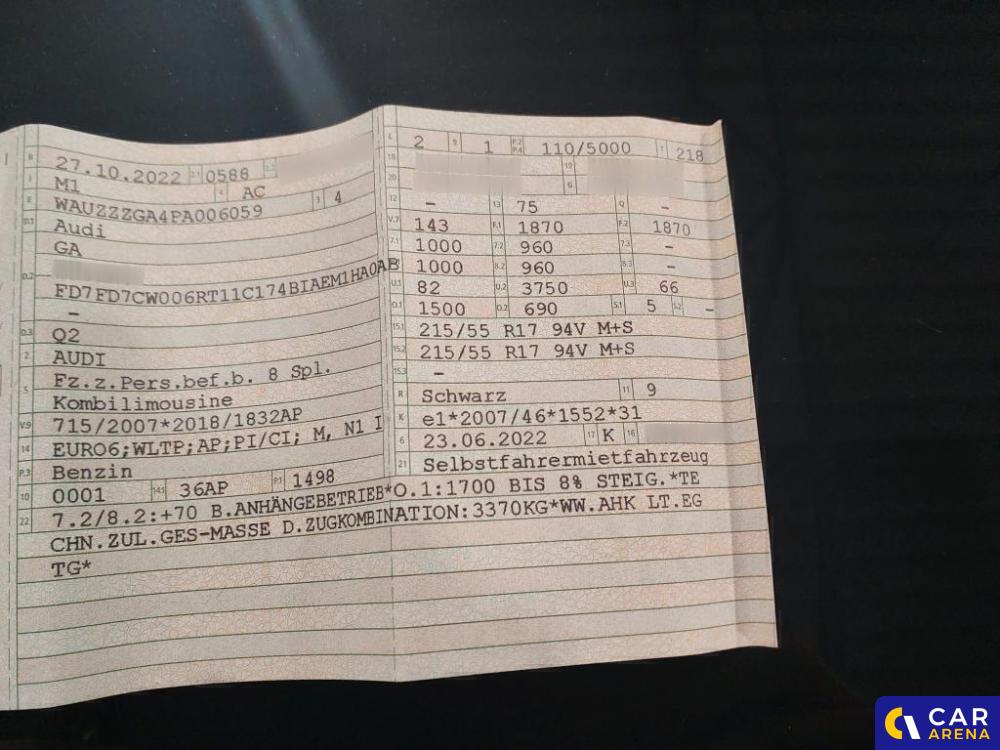 B 27.10.2022 2.1 0588 2.2
J M1 4 AC
E WAUZZZGA4PA006059 3 4
D.1 Audi
GA
D.2
FD7FD7CW006RT11C174BIAEM1HA0AB
–
D.3 Q2
2 AUDI
5 Fz.z.Pers.bef.b. 8 Spl.
Kombilimousine
V.9 715/2007*2018/1832AP
14 EURO6;WLTP;AP;PI/CI; M, N1 I
P.3 Benzin
10 0001 14.1 36AP P.1 1498
L 2 9 1 P.2 P.4 110/5000 T 218
18 19
20 G
12 – 13 75 Q –
V.7 143 F.1 1870 F.2 1870
7.1 1000 7.2 960 7.3 –
8.1 1000 8.2 960 8.3 –
U.1 82 U.2 3750 U.3 66
O.1 1500 O.2 690 S.1 5 S.2 –
15.1 215/55 R17 94V M+S
15.2 215/55 R17 94V M+S
15.3 –
R Schwarz 11 9
K e1*2007/46*1552*31
6 23.06.2022 17 K 16
21 Selbstfahrermietfahrzeug
22 7.2/8.2:+70 B.ANHÄNGEBETRIEB*O.1:1700 BIS 8% STEIG.*TE
CHN.ZUL.GES-MASSE D.ZUGKOMBINATION:3370KG*WW.AHK LT.EG
TG*
CAR
ARENA